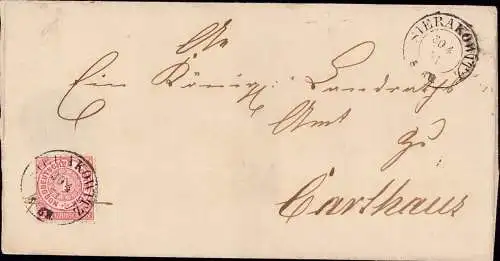 SIERAKOWITZ
An
Ein Königl. Landraths
Amt
zu
Carthaus
SIERAKOWITZ